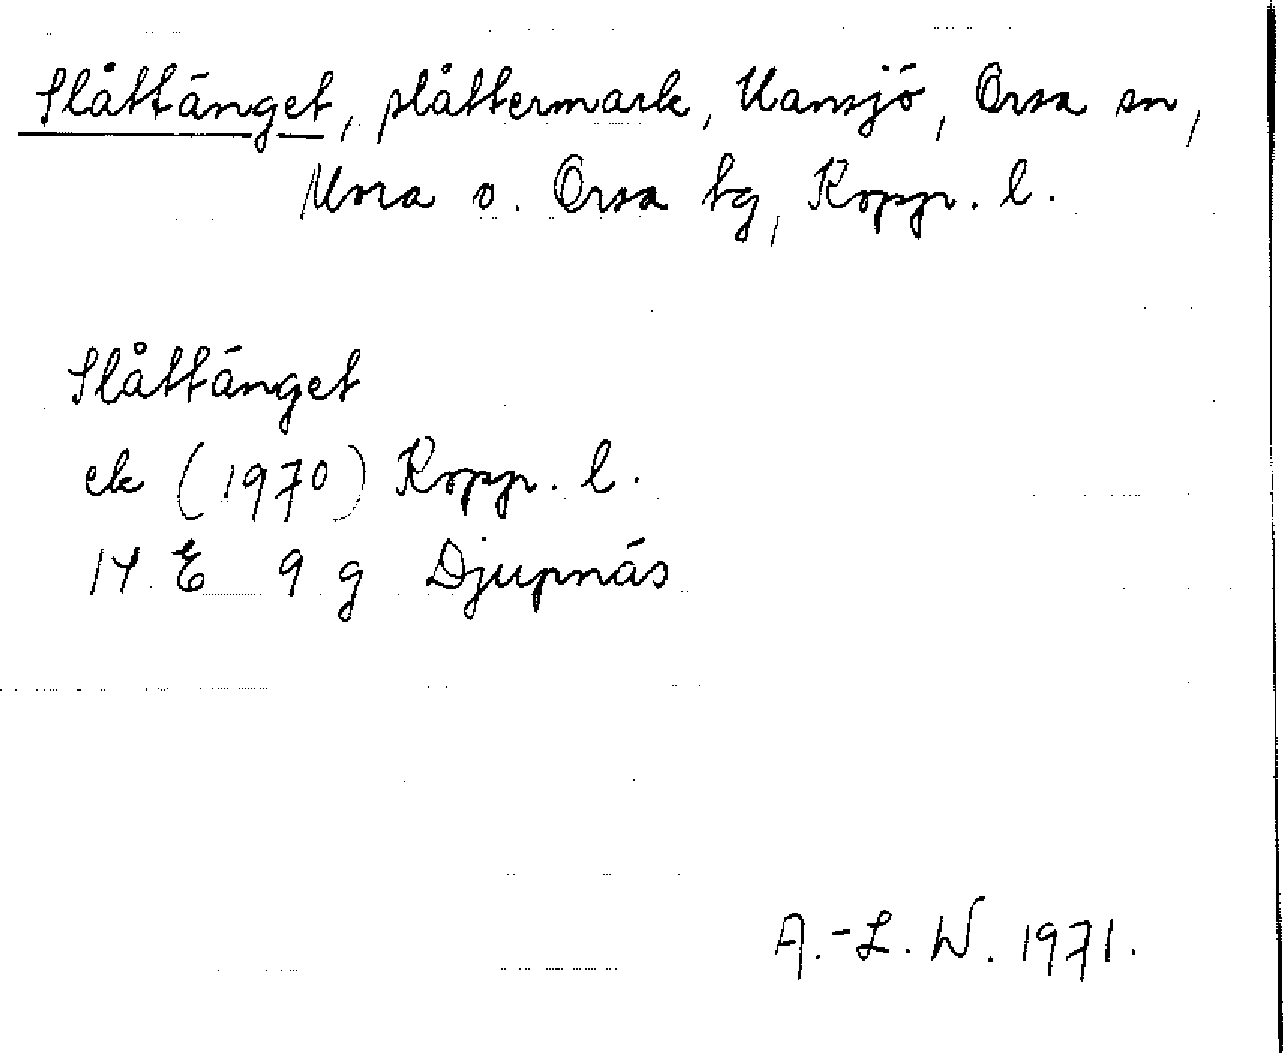 Slåttänget, slåttermark, Hansjö, Orsa sn,
Mora o. Orsa tg, Kopp. l.
Slåttänget
ek (1970) Kopp. l.
14 E 9 g Djupnäs
A.-L. W. 1971.